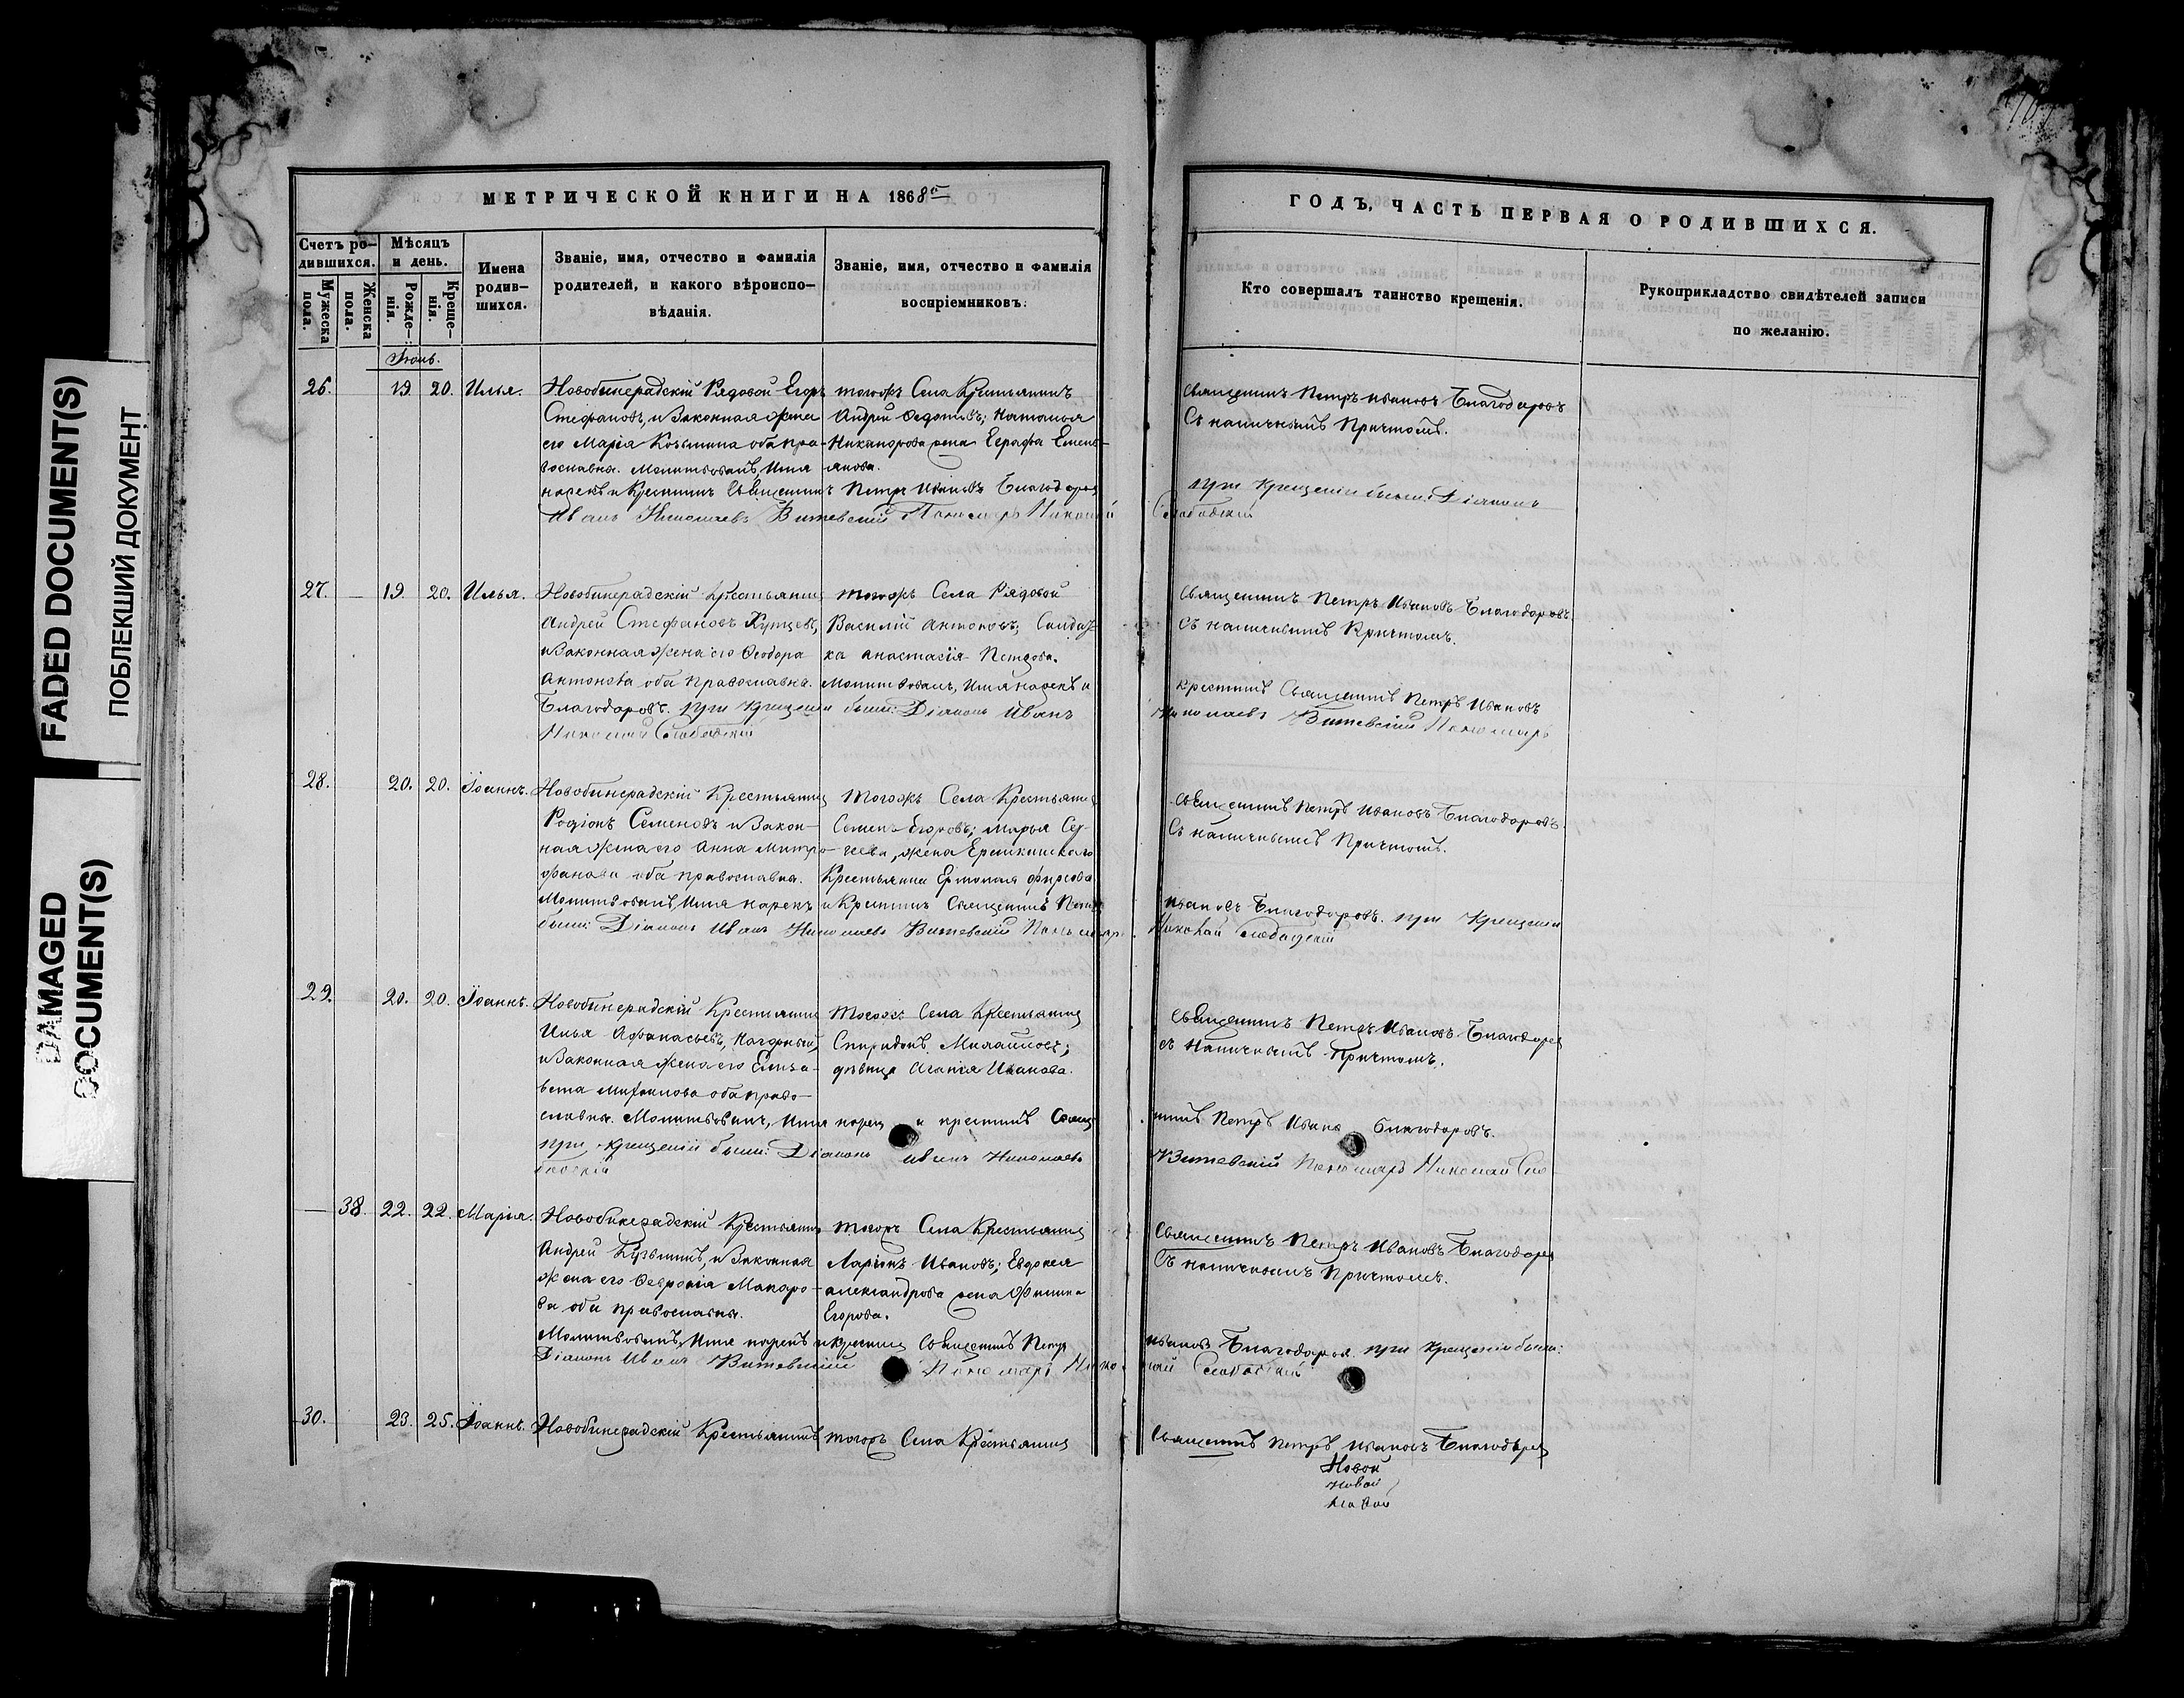 FADED DOCUMENT(S)
ПОБЛЕКШИЙ ДОКУМЕНТ
DAMAGED
DOCUMENT(S)
МЕТРИЧЕСКОЙ КНИГИ НА 1868
ГОДЪ, ЧАСТЬ ПЕРВАЯ О РОДИВШИХСЯ.
Счетъ ро-
дившихся.
Мужеска
пола.
Женска
пола.
Мѣсяцъ
и день.
Рожде-
нія.
Креще-
нія.
Имена
родив-
шихся.
Званіе, имя, отчество и фамилія
родителей, и какого вѣроиспо-
вѣданія.
Званіе, имя, отчество и фамилія
воспріемниковъ.
Кто совершалъ таинство крещенія.
Рукоприкладство свидѣтелей записи
по желанію.
26. 19 20. Илья. Новобинерадскій Рядовой Егоръ
Стефановъ, и Законная жена
его Марія Козьмина оба пра-
вославны. Молитвовалъ, Имя
нарекъ и Крестилъ Священникъ Петръ Ивановъ Благодаровъ
при Крещеніи были: Діаконъ
Иванъ Николаевъ Витевскій Пономарь Николай Слободскій
тогожъ Села Крестьянинъ
Андрей Ѳедотовъ; Наталья
Никандрова жена Евграфа Емель-
янова.
Священникъ Петръ Ивановъ Благодаровъ
Съ наличнымъ Причтомъ.
27. 19. 20. Илья. Новобинерадскій Крестьянинъ
Андрей Стефановъ
и Законная жена его Ѳеодора
Антонова оба Православна.
тогожъ Села Рядовой
Василій Антоновъ; Солдат-
ка Анастасія Петрова.
Священникъ Петръ Ивановъ Благодаровъ
Съ наличнымъ Причтомъ.
Молитвовалъ, Имя нарекъ и
крестилъ Священникъ Петръ Ивановъ
Благодаровъ. при Крещеніи были: Діаконъ Иванъ
Николаевъ Витевскій Пономарь
Николай Слободскій
28. 20. 20. Іоаннъ. Новобинерадскій Крестьянинъ
Родіонъ Семеновъ и Закон-
ная жена его Анна Митро-
фанова оба православна.
Тогожъ Села Крестьянинъ
Семенъ Егоровъ; Марья Сер-
геева, жена Еремкинскаго
Крестьянина Ермолая Фирсова
Священникъ Петръ Ивановъ Благодаровъ.
Съ наличнымъ Причтомъ.
Молитвовалъ, Имя нарекъ и Крестилъ Священникъ Петръ
Ивановъ Благодаровъ. при Крещеніи
были: Діаконъ Иванъ Николаевъ Витевскій Пономарь
Николай Слободскій
29. 20. 20. Іоаннъ. Новобинерадскій Крестьянинъ
Илья Афанасьевъ,
и Законная жена его Елиза-
вета Михайлова оба право-
славны.
тогожъ Села Крестьянинъ
Спиридонъ Михайловъ;
дѣвица Агапія Иванова.
Священникъ Петръ Ивановъ Благодаровъ
съ Наличнымъ Причтомъ.
Молитвовалъ, Имя нарекъ и крестилъ Священ-
никъ Петръ Ивановъ Благодаровъ.
при крещеніи были: Діаконъ Иванъ Николаевъ
Витевскій Пономарь Николай Сло-
бодскій
38. 22. 22. Марія. Новобинерадскій Крестьянинъ
Андрей Кузьминъ, и Законная
жена его Ѳевронія Макаро-
ва оба православны.
тогожъ Села Крестьянинъ
Ларіонъ Ивановъ; Евдокея
Александрова жена Филипа
Егорова.
Священникъ Петръ Ивановъ Благодаровъ
Съ наличнымъ Причтомъ.
Молитвовалъ, Имя нарекъ и крестилъ Священникъ Петръ
Ивановъ Благодаровъ. при Крещеніи были:
Діаконъ Иванъ Витевскій Пономарь Нико-
лай Слободскій
30. 23. 25. Іоаннъ. Новобинерадскій Крестьянинъ
тогожъ Села Крестьянинъ
Священникъ Петръ Ивановъ Благодаровъ
Новой
Новой